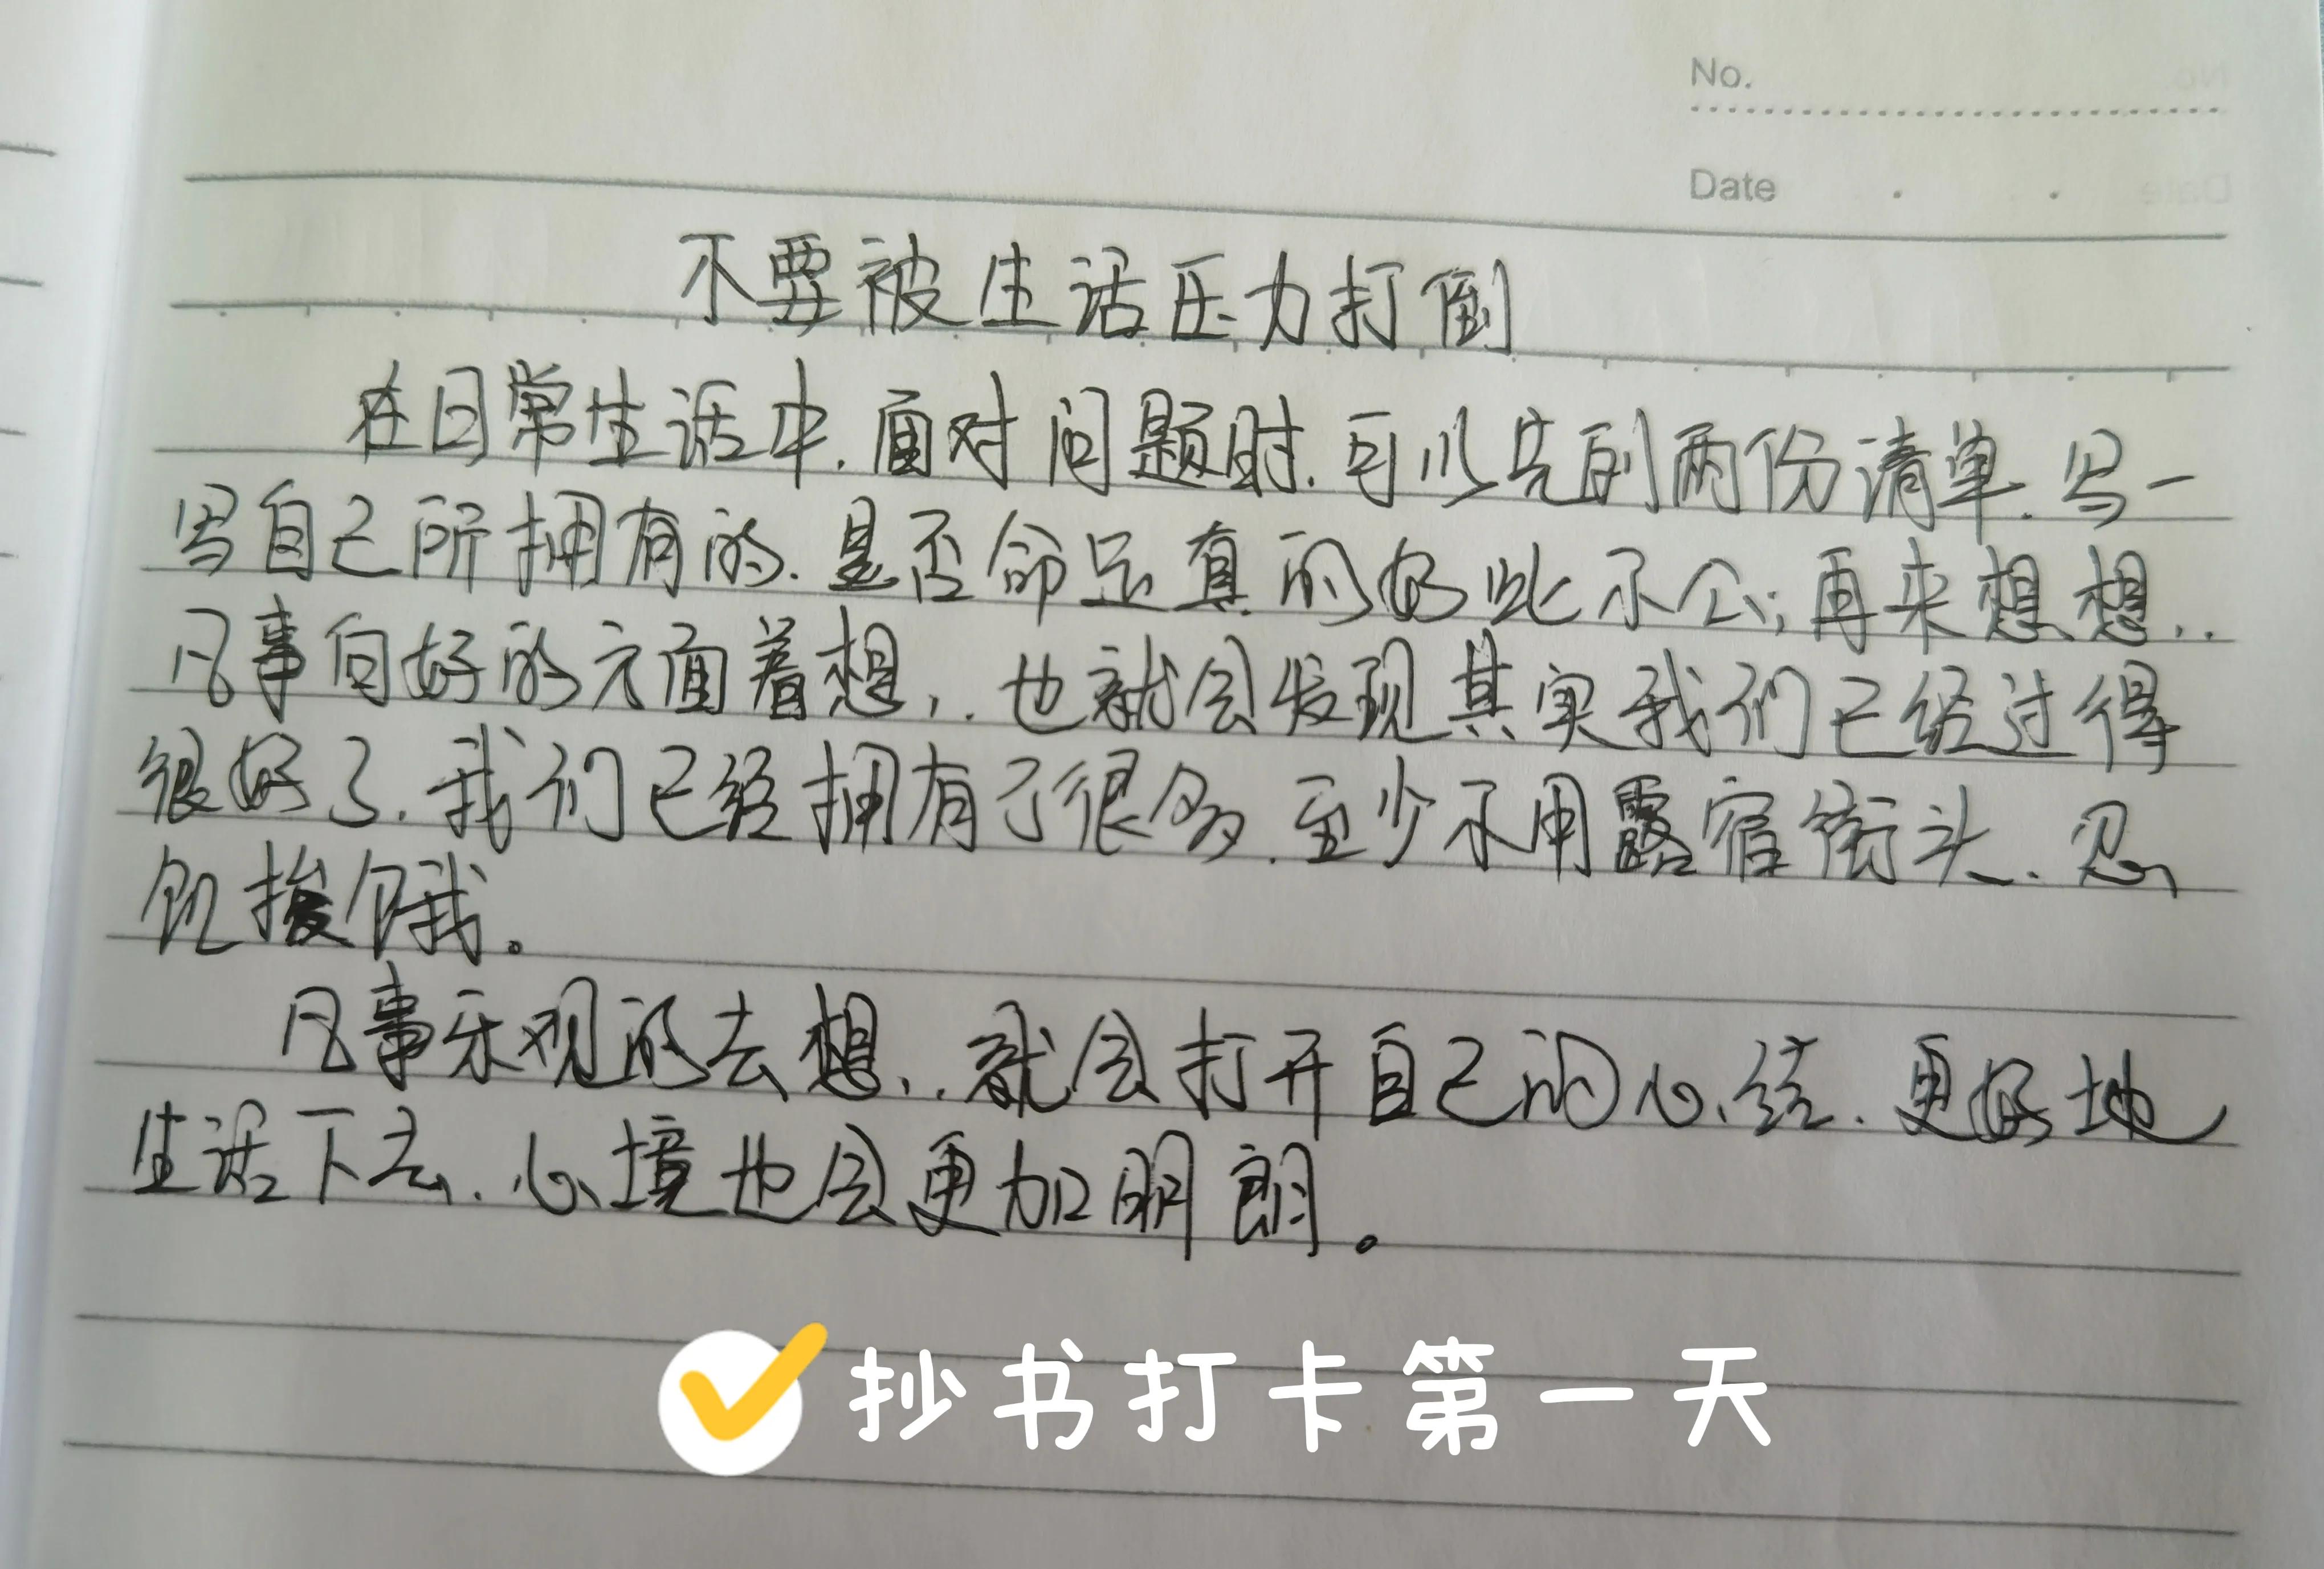 No.
Date
不要被生活压力打倒
在日常生活中.面对问题时.可以先列两份清单.写一
写自己所拥有的.是否命运真的如此不公;再来想想..
凡事向好的方面着想,.也就会发现其实我们已经过得
很好了.我们已经拥有了很多.至少不用露宿街头.忍
饥挨饿。
凡事乐观的去想,.就会打开自己的心结.更好地
生活下去.心境也会更加明朗。
抄书打卡第一天